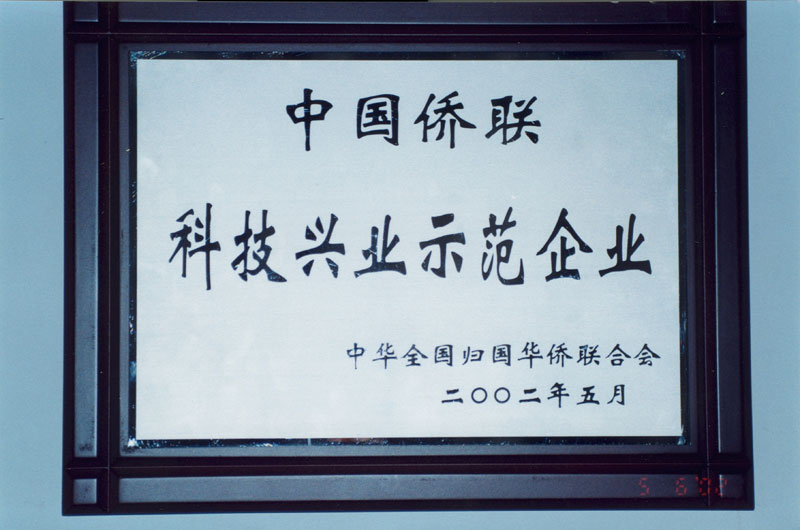 中国侨联
科技兴业示范企业
中华全国归国华侨联合会
二〇〇二年五月
5 6'02